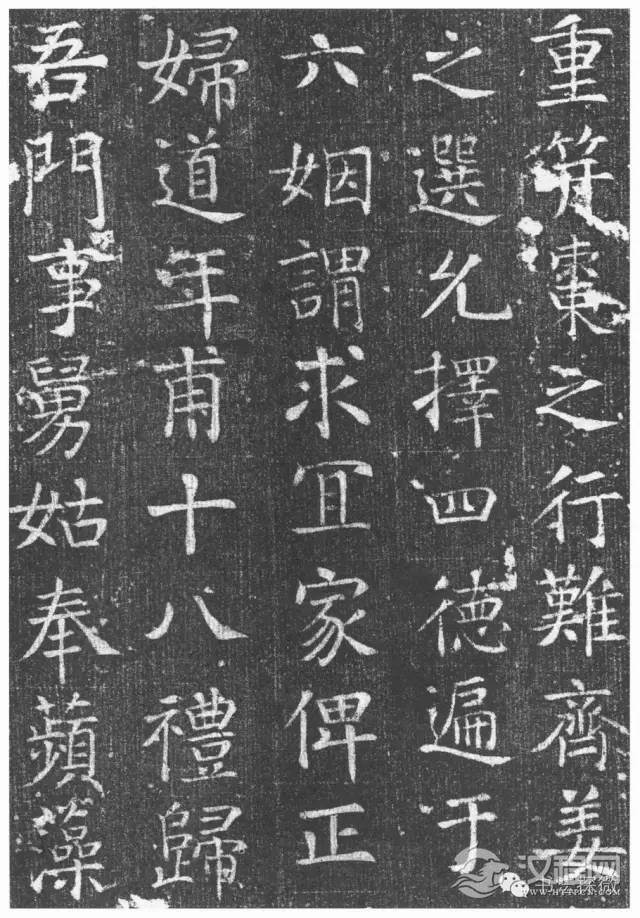 重符棗之行難齊姜
之選允擇四德遍于
六姻謂求冝家俾正
婦道年甫十八禮歸
吾門事舅姑奉蘋藻
汉程网
书学探微